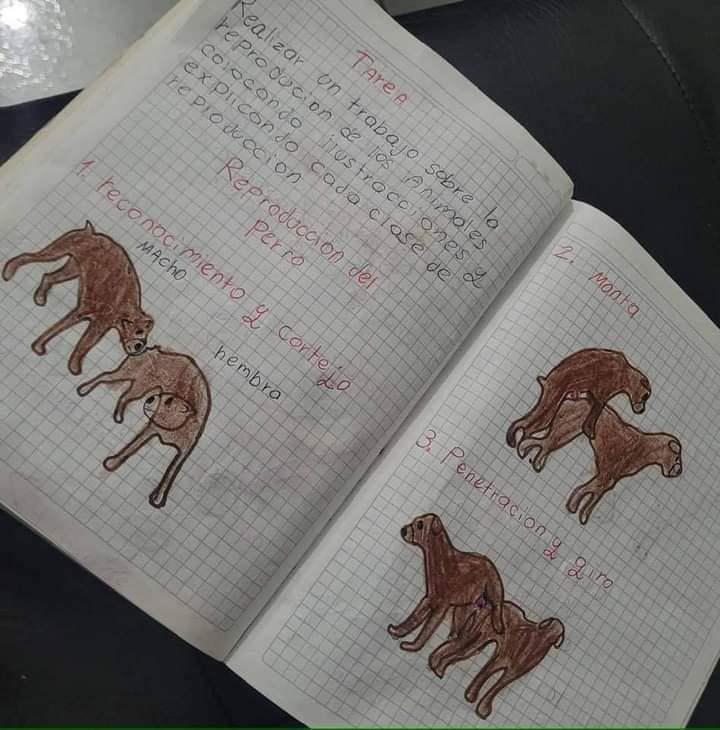 Tarea
Realizar un trabajo sobre la
reproducion de los Animales
colocando ilustracciones y
explicando cada clase de
reproduccion
Reproduccion del
perro
1. reconocimiento y cortejo
MACHO
hembra
2. Monta
3. Penetracion y giro